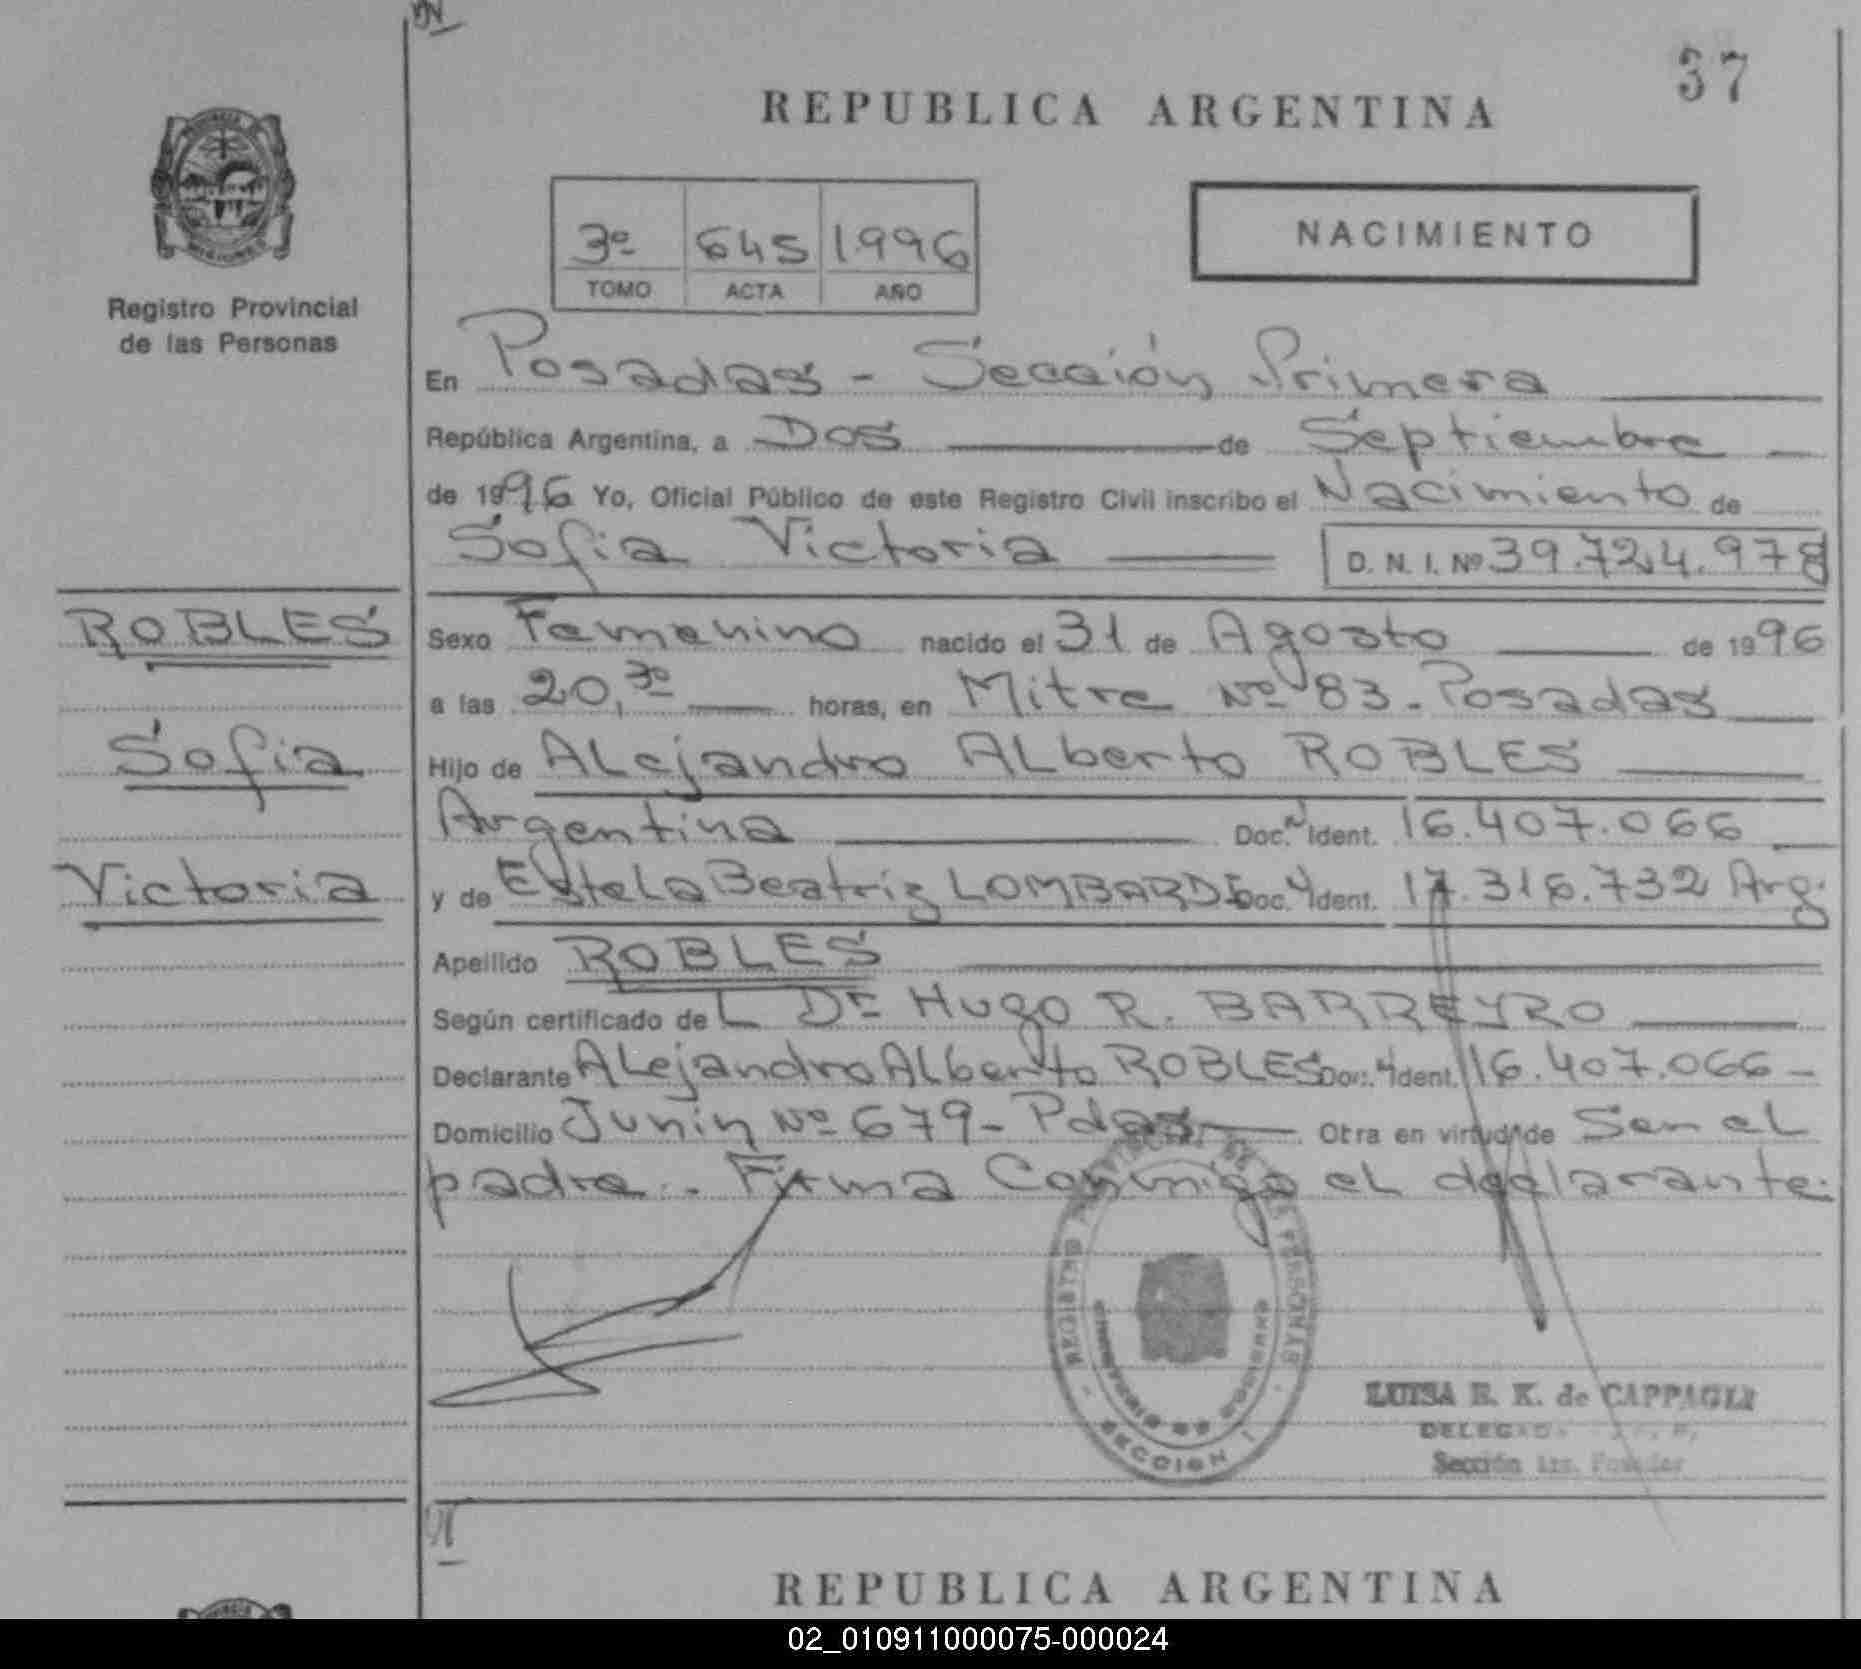 37
REPUBLICA ARGENTINA
3º 645 1996
TOMO ACTA AÑO
NACIMIENTO
Registro Provincial
de las Personas
En Posadas - Sección Primera
República Argentina, a Dos de Septiembre
de 1996 Yo, Oficial Público de este Registro Civil inscribo el Nacimiento de
Sofia Victoria D. N. I. Nº 39.724.978
ROBLES
Sofia
Victoria
Sexo Femenino nacido el 31 de Agosto de 1996
a las 20,30 horas, en Mitre Nº 83 - Posadas
Hijo de Alejandro Alberto ROBLES
Argentina Doc. Ident. 16.407.066
y de Estela Beatriz LOMBARDI Doc. Ident. 17.316.732 Arg.
Apellido ROBLES
Según certificado de L Dr Hugo R. BARREYRO
Declarante Alejandro Alberto ROBLES Doc. Ident. 16.407.066 -
Domicilio Junin Nº 679 - Pdas Otra en virtud de Ser el
padre. - Firma Conmigo el declarante.
REGISTRO PROVINCIAL DE LAS PERSONAS
MINISTERIO DE GOBIERNO
SECCION 1
LUISA E. K. de
Sección 1ra. Posadas
REPUBLICA ARGENTINA
02_010911000075-000024